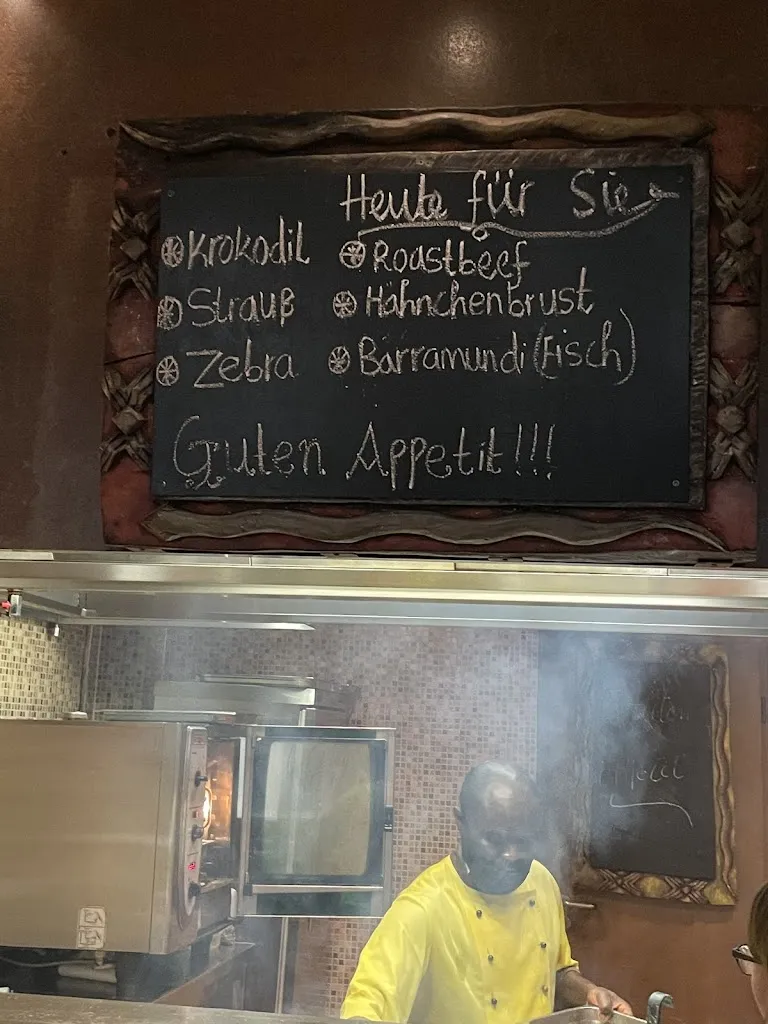 Heute für Sie
Krokodil
Strauß
Zebra
Roastbeef
Hähnchenbrust
Barramundi (Fisch)
Guten Appetit!!!